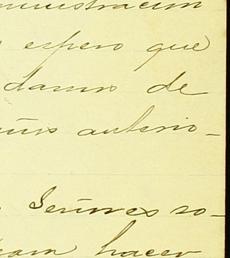 ministracion
espero que
damos de
anterio-
Señores so-
hacer